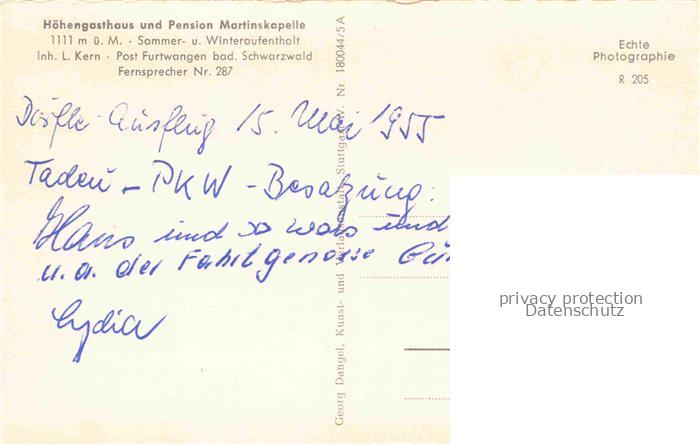 Höhengasthaus und Pension Martinskapelle
1111 m ü. M. · Sommer- u. Winteraufenthalt
Inh. L. Kern · Post Furtwangen bad. Schwarzwald
Fernsprecher Nr. 287
Echte
Photographie
R 205
Georg Dangel, Kunst- und Verlagsanstalt, Stuttgart-W. Nr 180044/5 A
Ausflug 15. Mai 1955
PKW - Besatzung:
Hans und so wals und
u. a. der Fahrtgenosse
Lydia
privacy protection
Datenschutz